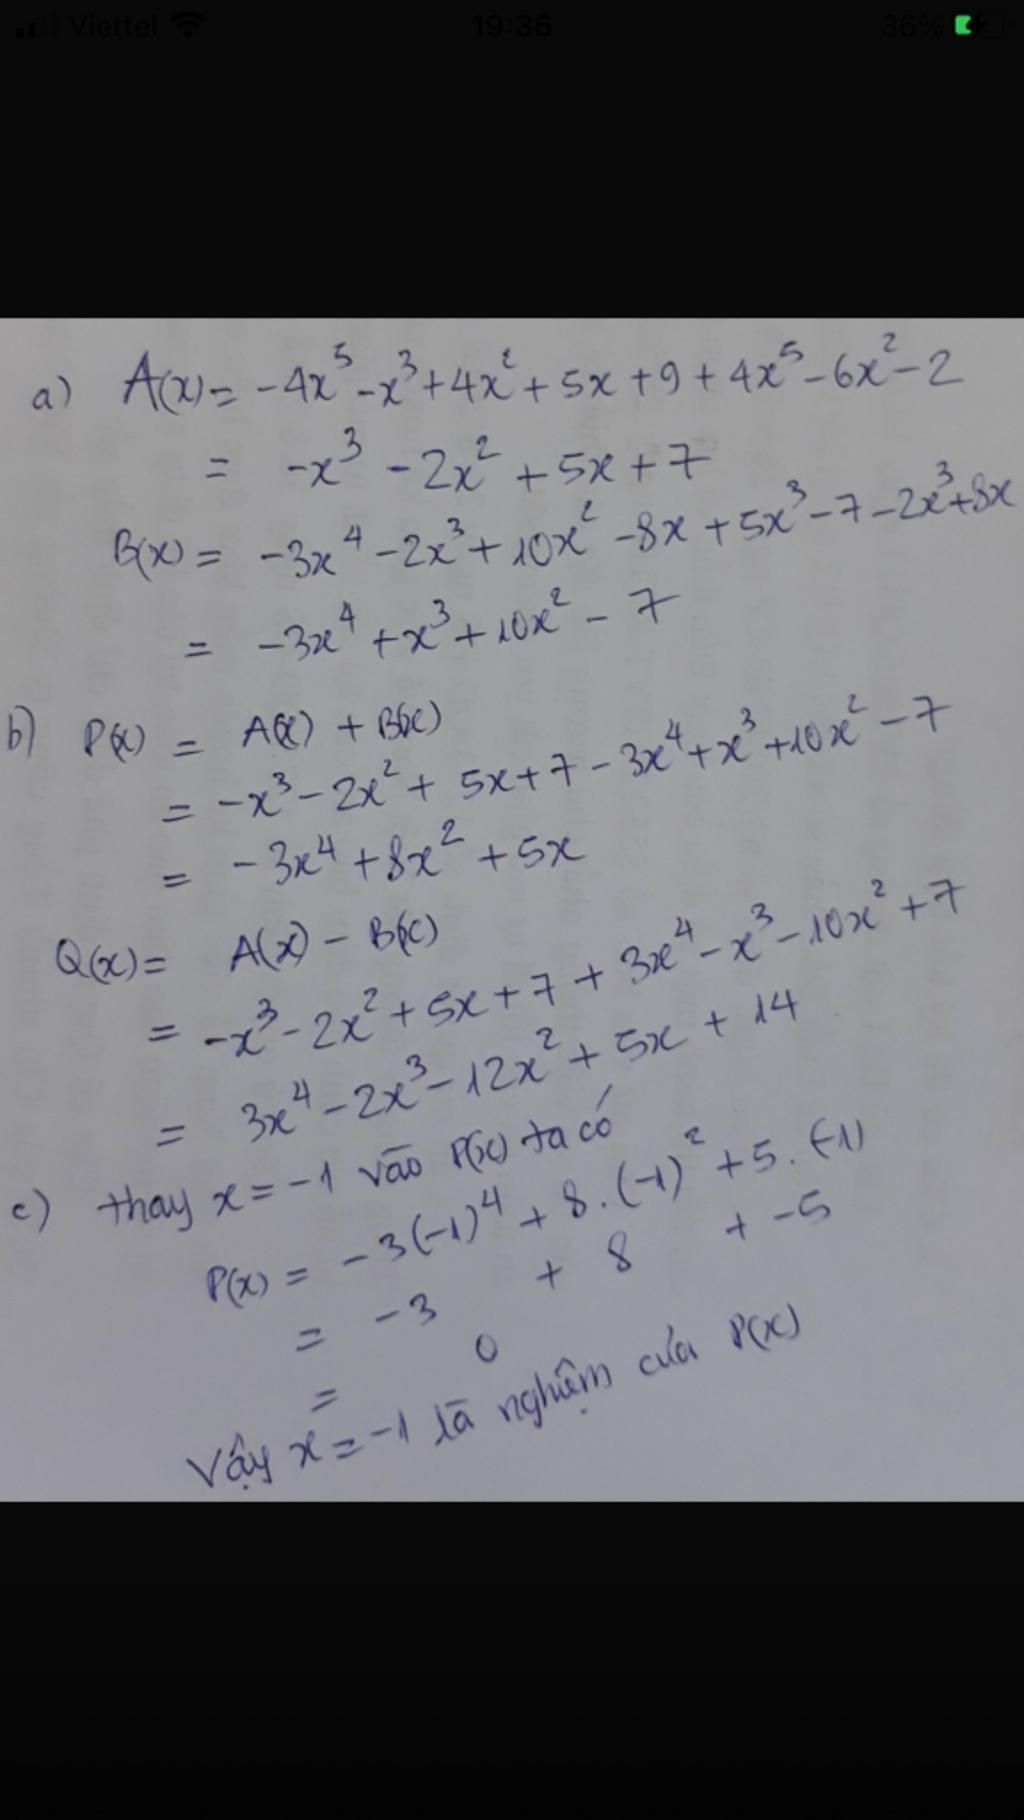 Viettel 19:36 36%
a) A(x) = -4x⁵ - x³ + 4x² + 5x + 9 + 4x⁵ - 6x² - 2
= -x³ - 2x² + 5x + 7
B(x) = -3x⁴ - 2x³ + 10x² - 8x + 5x³ - 7 - 2x³ + 8x
= -3x⁴ + x³ + 10x² - 7
b) P(x) = A(x) + B(x)
= -x³ - 2x² + 5x + 7 - 3x⁴ + x³ + 10x² - 7
= -3x⁴ + 8x² + 5x
Q(x) = A(x) - B(x)
= -x³ - 2x² + 5x + 7 + 3x⁴ - x³ - 10x² + 7
= 3x⁴ - 2x³ - 12x² + 5x + 14
c) thay x = -1 vào P(x) ta có
P(x) = -3(-1)⁴ + 8.(-1)² + 5.(-1)
= -3 + 8 + -5
= 0
Vậy x = -1 là nghiệm của P(x)